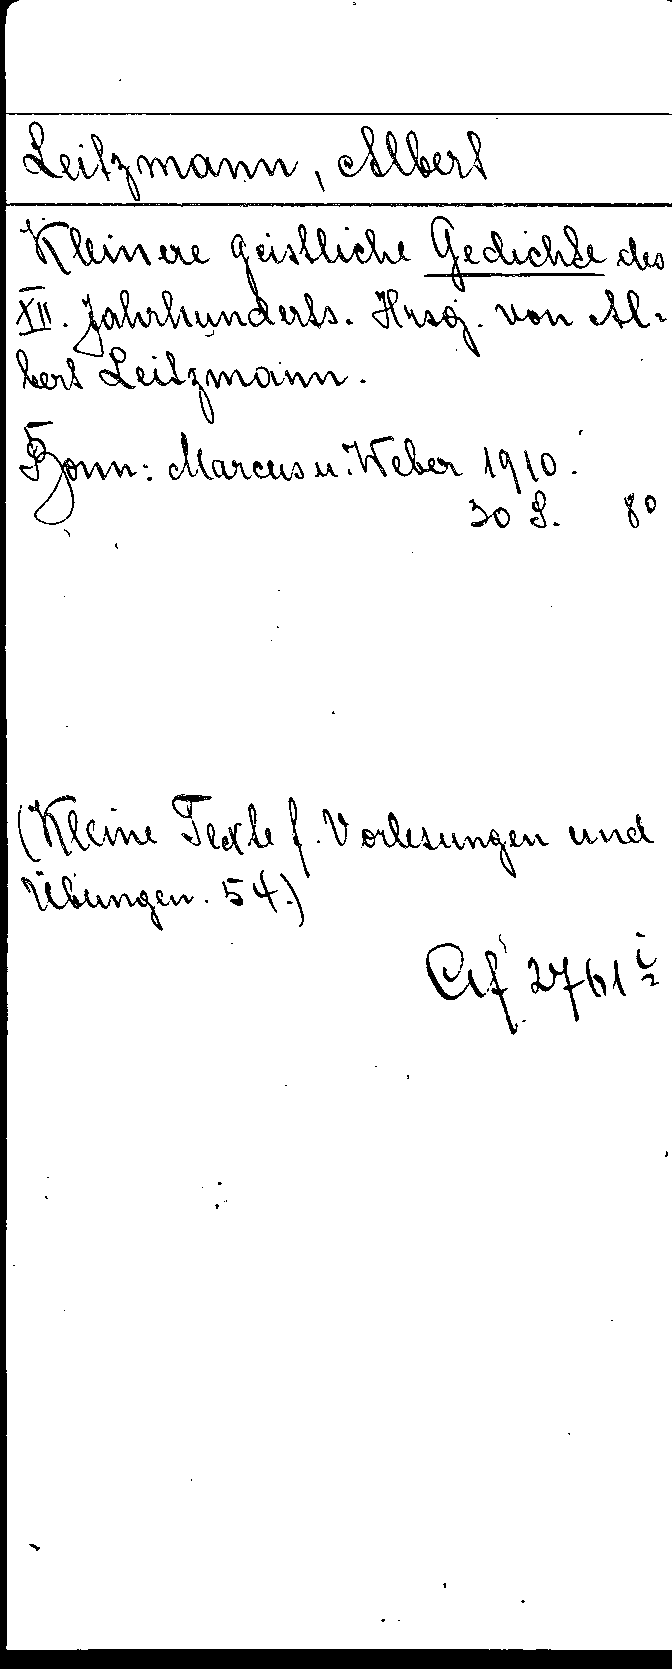 Leitzmann, Albert
Kleinere geistliche Gedichte des
XII. Jahrhunderts. Hrsg. von Al-
bert Leitzmann.
Bonn: Marcus u. Weber 1910.
30 S. 8°
(Kleine Texte f. Vorlesungen und
Übungen. 54.)
Af 2761 i/2